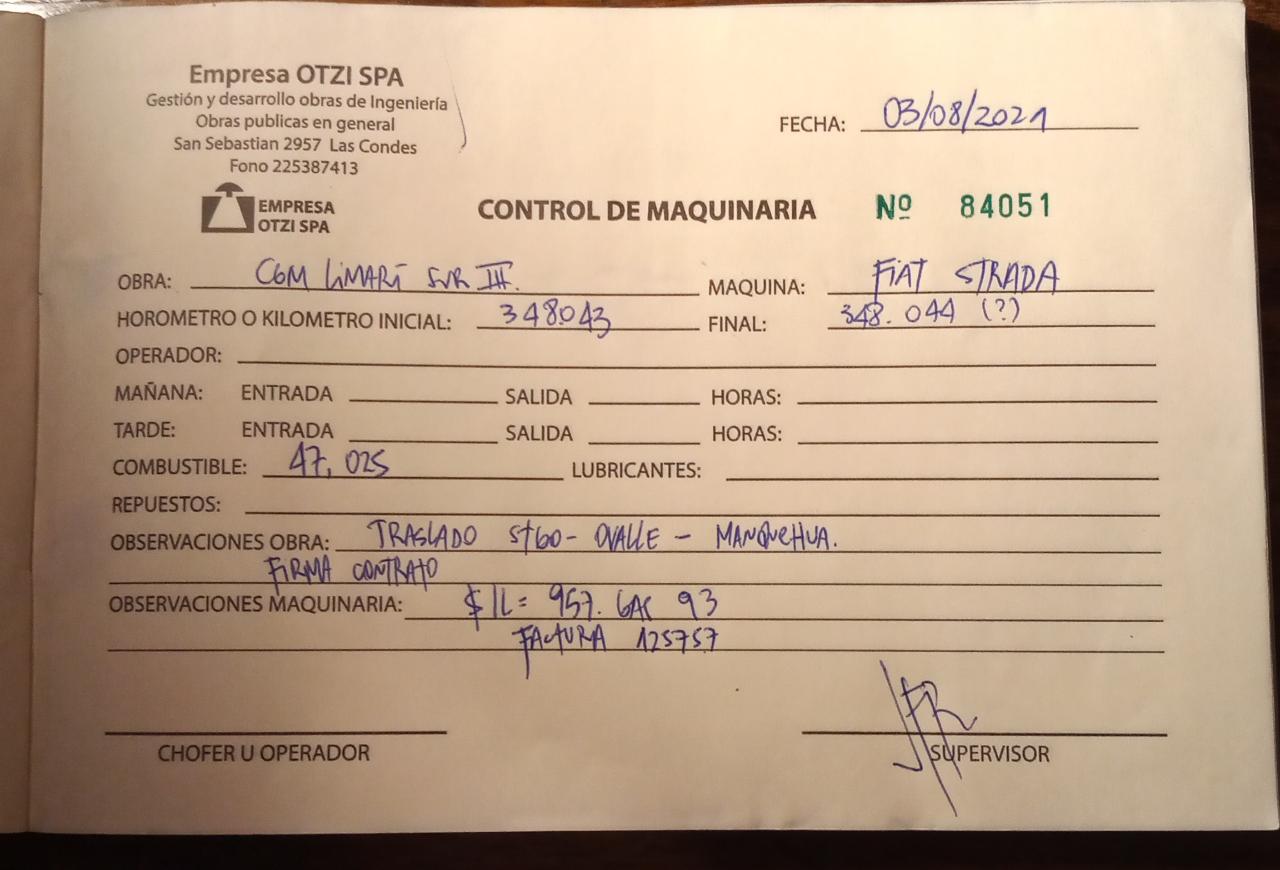 Empresa OTZI SPA
Gestión y desarrollo obras de Ingeniería
Obras publicas en general
San Sebastian 2957 Las Condes
Fono 225387413
FECHA: 03/08/2021
EMPRESA
OTZI SPA
CONTROL DE MAQUINARIA Nº 84051
OBRA: CGM LIMARÍ SUR III. MAQUINA: FIAT STRADA
HOROMETRO O KILOMETRO INICIAL: 348.043 FINAL: 348.044 (?)
OPERADOR:
MAÑANA: ENTRADA SALIDA HORAS:
TARDE: ENTRADA SALIDA HORAS:
COMBUSTIBLE: 47,025 LUBRICANTES:
REPUESTOS:
OBSERVACIONES OBRA: TRASLADO STGO - OVALLE - MANQUEHUA.
FIRMA CONTRATO
OBSERVACIONES MAQUINARIA: $ 1L = 957. GAS 93
FACTURA 125757
CHOFER U OPERADOR
SUPERVISOR